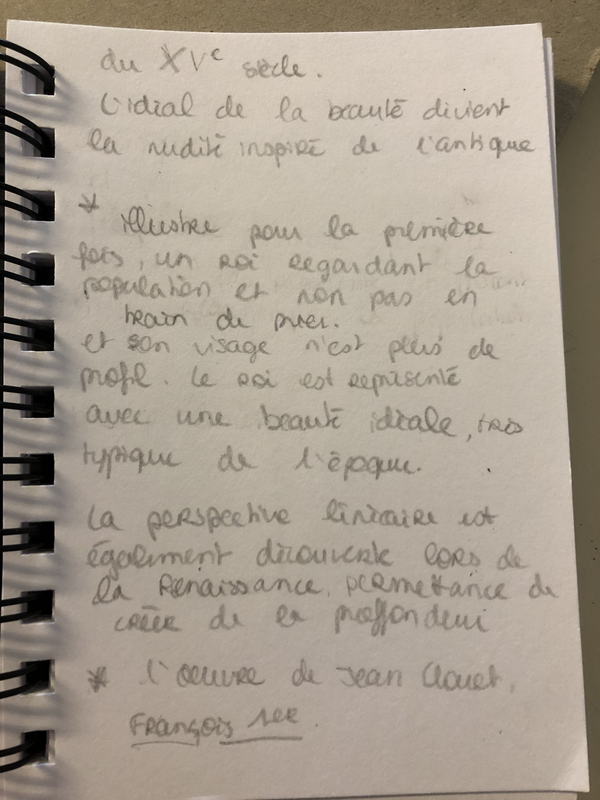 du XVe siècle.
L'idéal de la beauté divient
la nudité inspiré de l'antique
* illustre pour la première
fois, un roi regardant la
population et non pas en
train de prier.
et son visage n'est plus de
profil. Le roi est représenté
avec une beauté idéale, très
typique de l'époque.
La perspective linéaire est
également découverte lors de
la Renaissance, permettance de
créer de la proffondeur
* l'oeuvre de Jean Clouet,
François 1er.